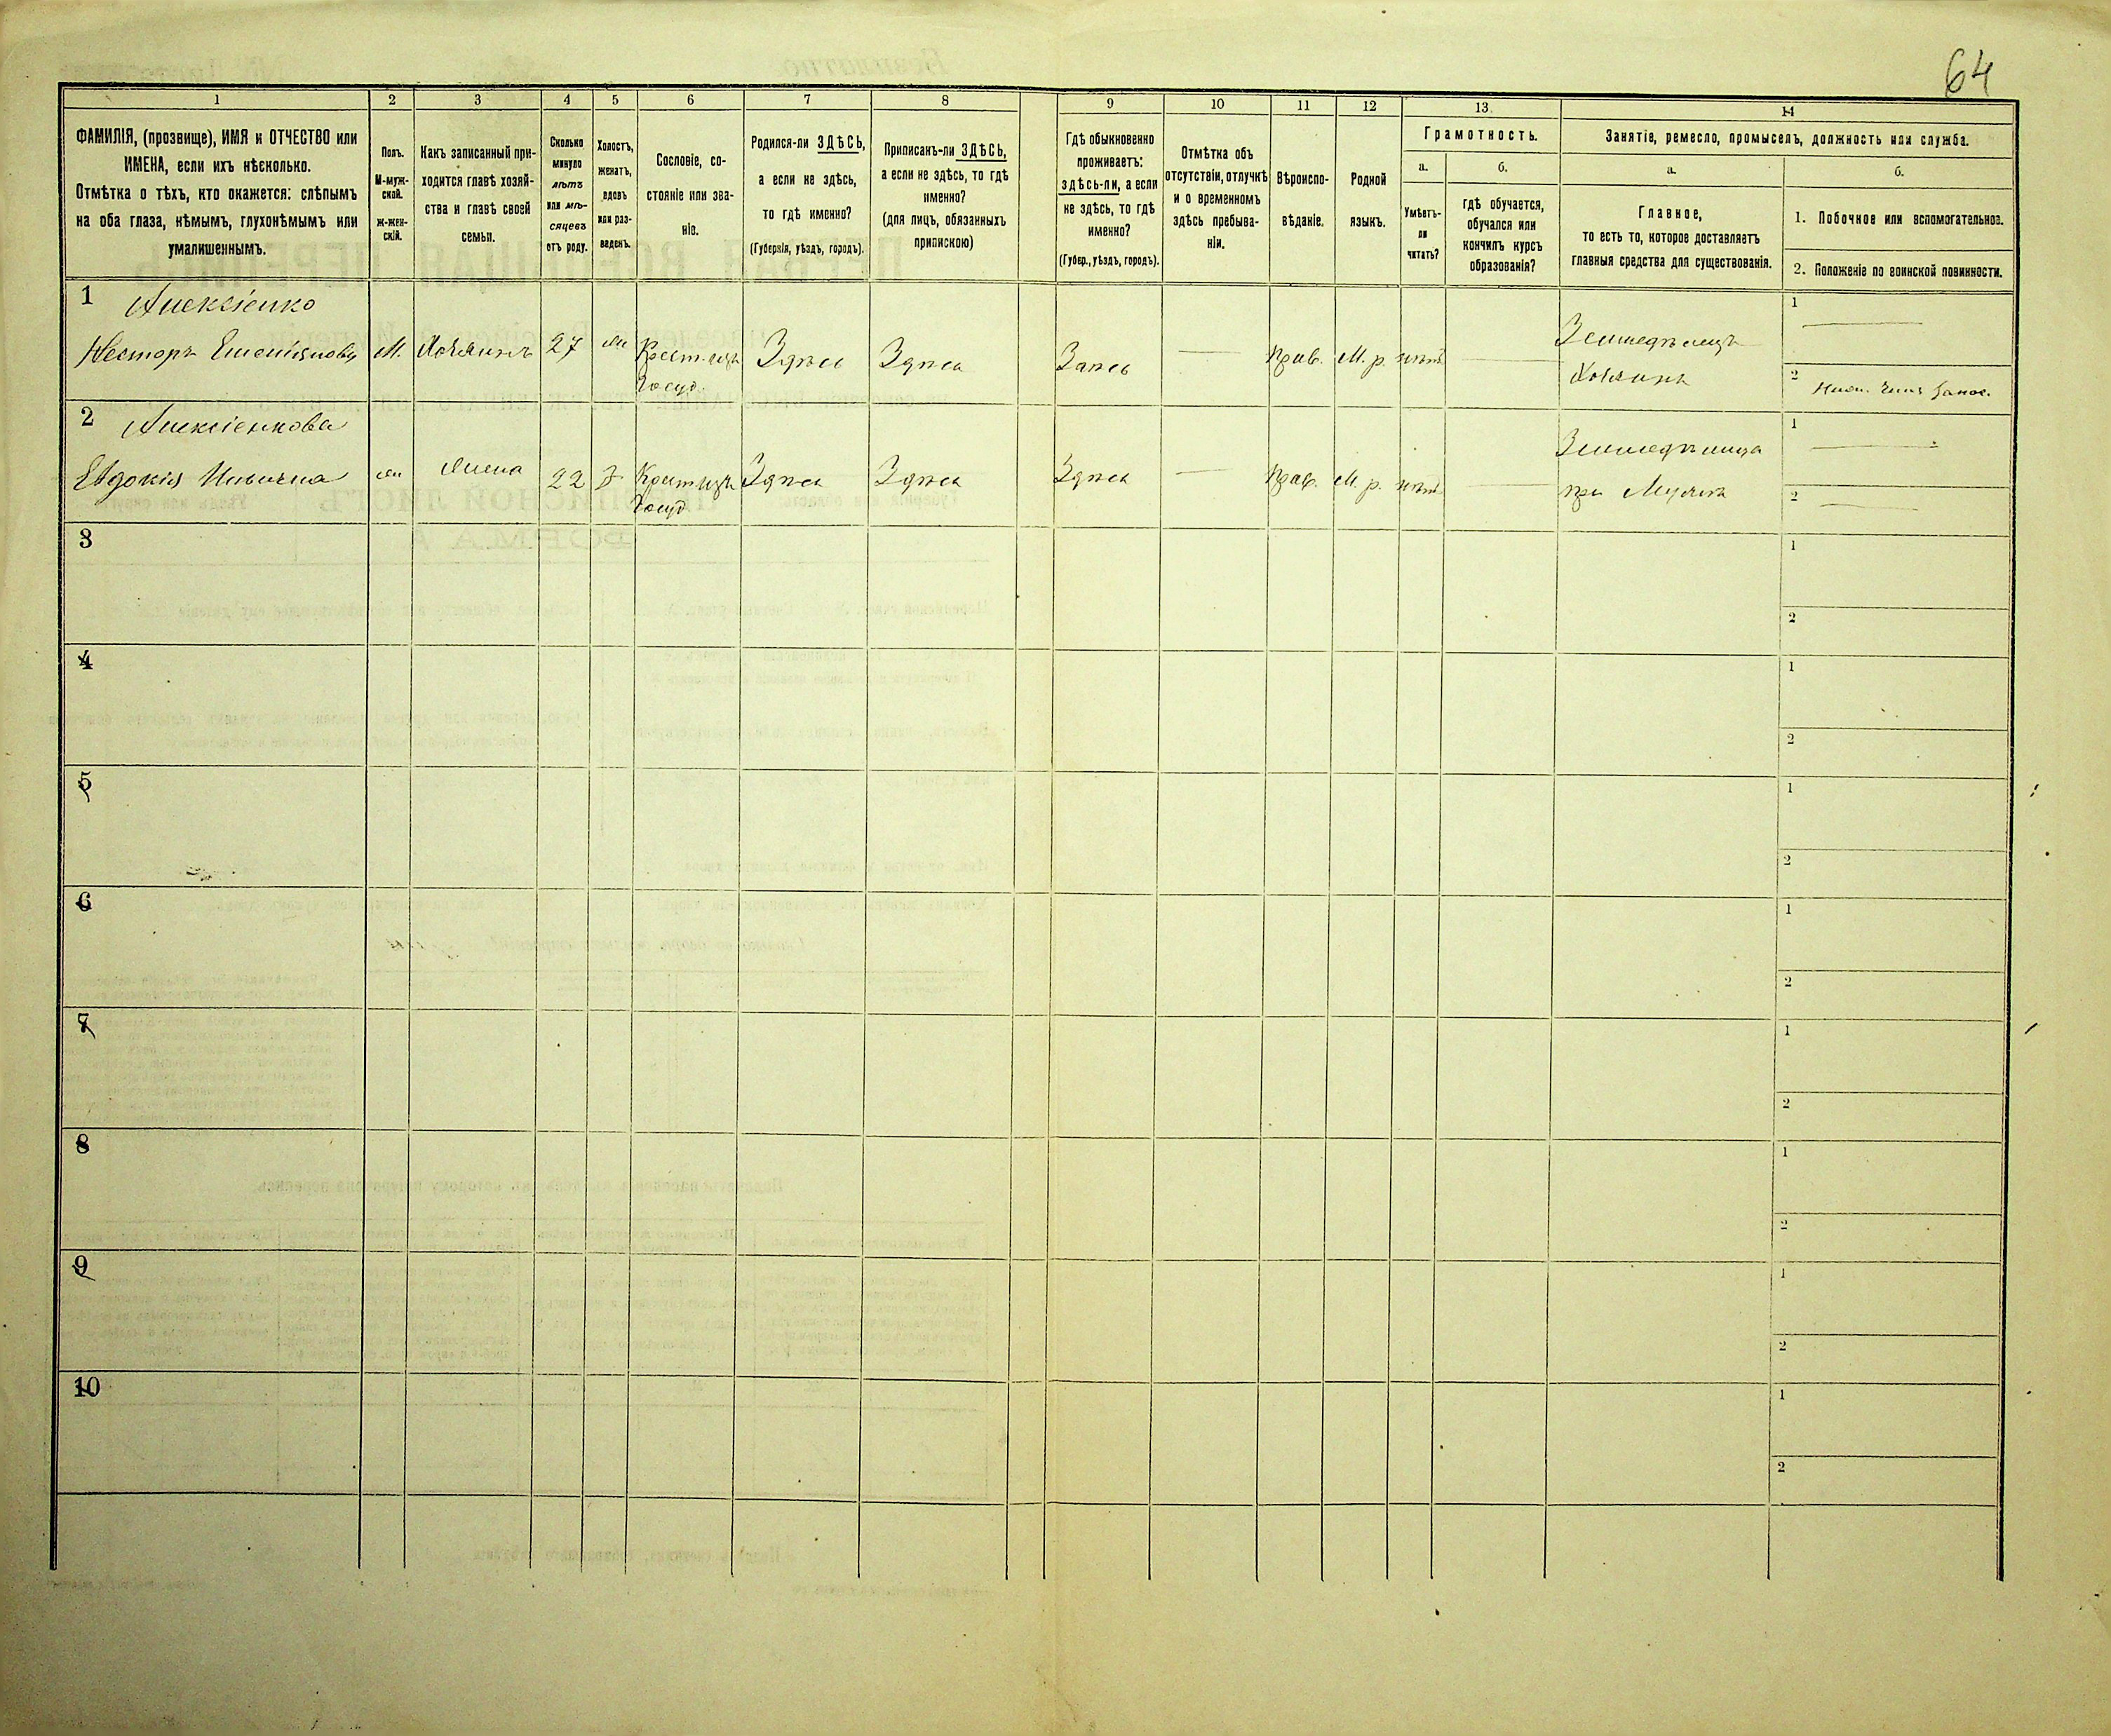 64
1 2 3 4 5 6 7 8 9 10 11 12 13. 14
ФАМИЛІЯ, (прозвище), ИМЯ и ОТЧЕСТВО или
ИМЕНА, если ихъ нѣсколько.
Отмѣтка о тѣхъ, кто окажется: слѣпымъ
на оба глаза, нѣмымъ, глухонѣмымъ или
умалишеннымъ.
Полъ.
М-муж-
ской.
ж-жен-
скій.
Какъ записанный при-
ходится главѣ хозяй-
ства и главѣ своей
семьи.
Сколько
минуло
лѣтъ
или мѣ-
сяцевъ
отъ роду.
Холостъ,
женатъ,
вдовъ
или раз-
веденъ.
Сословіе, со-
стояніе или зва-
ніе.
Родился-ли ЗДѢСЬ,
а если не здѣсь,
то гдѣ именно?
(Губернія, уѣздъ, городъ).
Приписанъ-ли ЗДѢСЬ,
а если не здѣсь, то гдѣ
именно?
(для лицъ, обязанныхъ
припискою)
Гдѣ обыкновенно
проживаетъ:
здѣсь-ли, а если
не здѣсь, то гдѣ
именно?
(Губер., уѣздъ, городъ).
Отмѣтка объ
отсутствіи, отлучкѣ
и о временномъ
здѣсь пребыва-
ніи.
Вѣроиспо-
вѣданіе.
Родной
языкъ.
Грамотность.
а.
Умѣетъ-
ли
читать?
б.
гдѣ обучается,
обучался или
кончилъ курсъ
образованія?
Занятіе, ремесло, промыселъ, должность или служба.
а.
Главное,
то есть то, которое доставляетъ
главныя средства для существованія.
б.
1. Побочное или вспомогательное.
2. Положеніе по воинской повинности.
1 Алексіенко
Несторъ Емельяновъ М. Хозяинъ 27 жн Крест. изъ Здѣсь Здѣсь Здѣсь — Прав. М. р. нѣтъ — Земледѣлецъ 1 —
Госуд. Хозяинъ 2
2 Алексіенкова
Евдокія жн Жена 22 З Крест изъ Здѣсь Здѣсь Здѣсь — Прав. М. р. нѣтъ — Земледѣлица 1 —
Госуд при Мужѣ 2 —
3 1
2
4 1
2
5 1
2
6 1
2
7 1
2
8 1
2
9 1
2
10 1
2